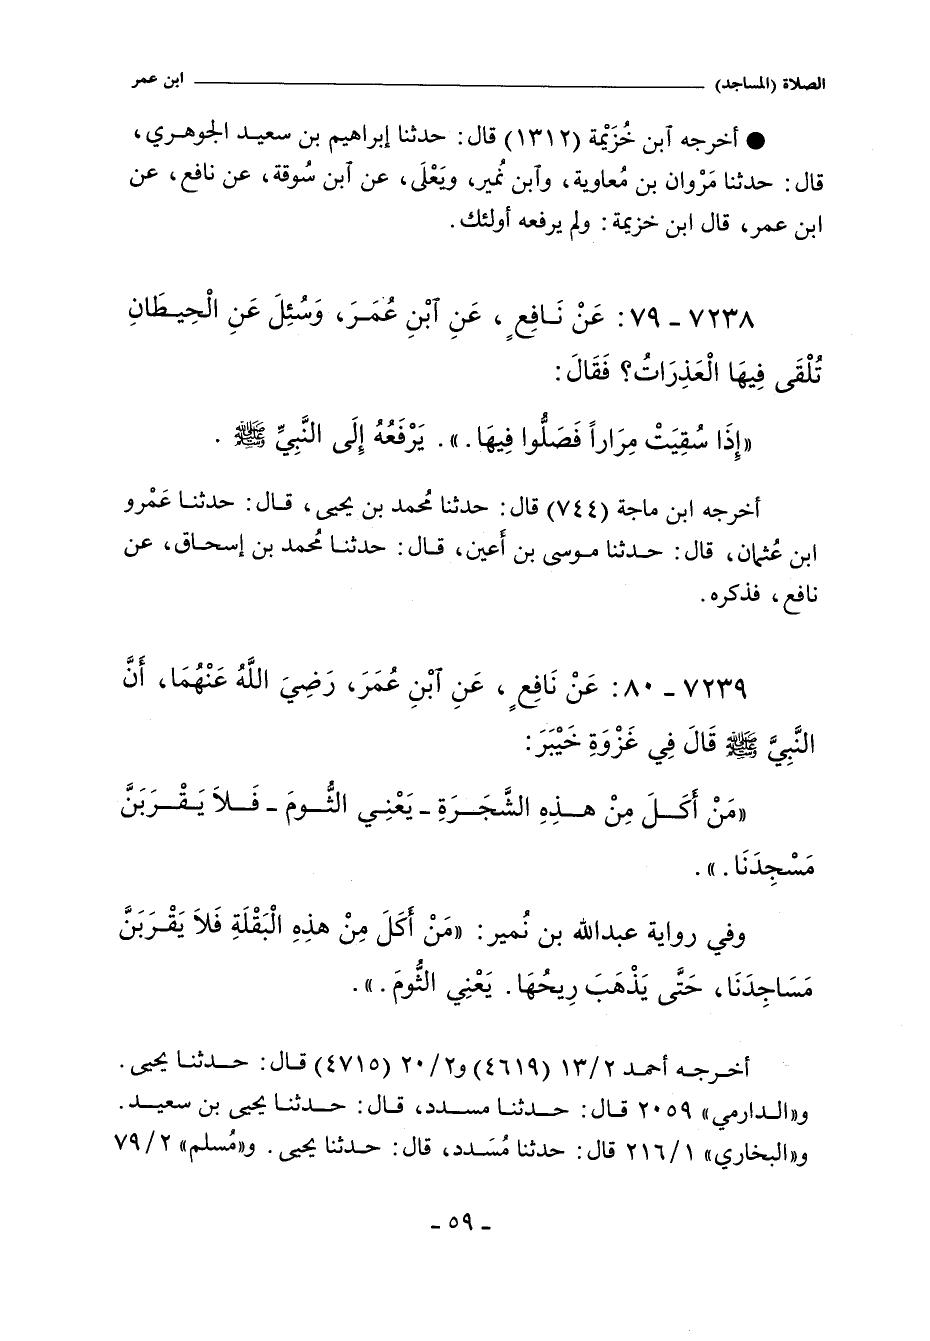 الصلاة (المساجد) ابن عمر
● أخرجه ٱبن خُزَيْمة (١٣١٢) قال: حدثنا إبراهيم بن سعيد الجوهري،
قال: حدثنا مَرْوان بن مُعاوية، وٱبن نُمير، ويَعْلَى، عن ٱبن سُوقة، عن نافع، عن
ابن عمر، قال ابن خزيمة: ولم يرفعه أولئك.
٧٢٣٨ - ٧٩: عَنْ نَافِعٍ، عَنِ ٱبْنِ عُمَرَ، وَسُئِلَ عَنِ الْحِيطَانِ
تُلْقَى فِيهَا الْعَذِرَاتُ؟ فَقَالَ:
«إِذَا سُقِيَتْ مِرَاراً فَصَلُّوا فِيهَا.». يَرْفَعُهُ إِلَى النَّبِيِّ ﷺ.
أخرجه ابن ماجة (٧٤٤) قال: حدثنا مُحمد بن يحيى، قال: حدثنا عَمْرو
ابن عُثمان، قال: حدثنا موسى بن أَعين، قال: حدثنا مُحمد بن إسحاق، عن
نافع، فذكره.
٧٢٣٩ - ٨٠: عَنْ نَافِعٍ، عَنِ ٱبْنِ عُمَرَ، رَضِيَ اللَّهُ عَنْهُمَا، أَنَّ
النَّبِيَّ ﷺ قَالَ فِي غَزْوَةِ خَيْبَرَ:
«مَنْ أَكَلَ مِنْ هذِهِ الشَّجَرَةِ - يَعْنِي الثُّومَ - فَلاَ يَقْرَبَنَّ
مَسْجِدَنَا.».
وفي رواية عبدالله بن نُمير: «مَنْ أَكَلَ مِنْ هذِهِ الْبَقْلَةِ فَلاَ يَقْرَبَنَّ
مَسَاجِدَنَا، حَتَّى يَذْهَبَ رِيحُهَا. يَعْنِي الثُّومَ.».
أخرجه أحمد ١٣/٢ (٤٦١٩) و٢٠/٢ (٤٧١٥) قال: حدثنا يحيى.
و«الدارمي» ٢٠٥٩ قال: حدثنا مسدد، قال: حدثنا يحيى بن سعيد.
و«البخاري» ٢١٦/١ قال: حدثنا مُسَدد، قال: حدثنا يحيى. و«مُسلم» ٧٩/٢
- ٥٩ -